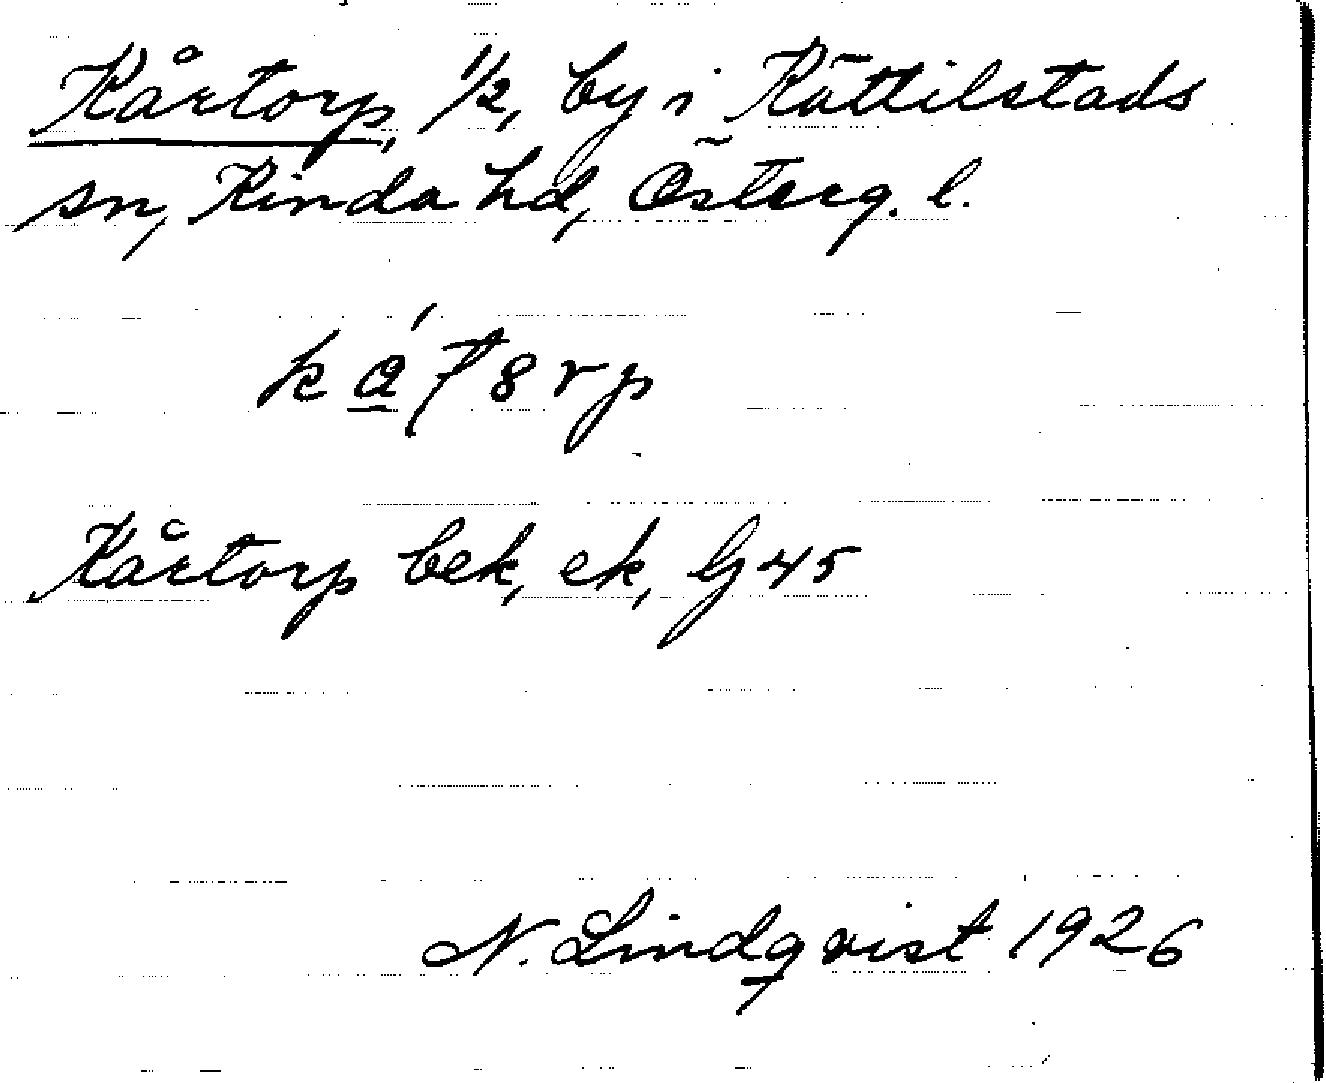 Kårtorp, 1/2, by i Kättilstads
sn, Kinda hd, Österg. l.
Kårtorp bek, ek, Gj 45
N. Lindqvist 1926